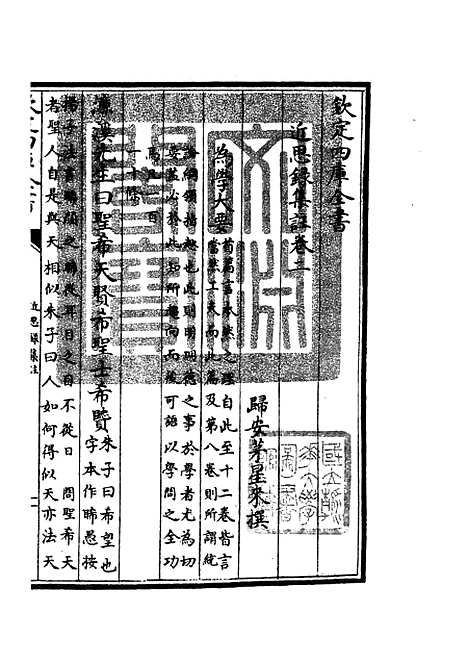 欽定四庫全書
近思錄集註卷二
歸安茅星來撰
為學大要
首篇言本然之理自此至十二卷皆言
當然工夫而此篇及第八卷則所謂統
論綱領指趣也此則明明德之事於學者尤為切
要蓋必於此知所趨向而後可語以學問之全功
凡一百
一十條
濂溪先生曰聖希天賢希聖士希賢
朱子曰希望也
字本作睎愚按
揚子法言睎顏之睎從耳目之目不從日 問聖希天
者聖人自是與天相似朱子曰人如何得似天亦法天
欽定四庫全書
近思錄集註